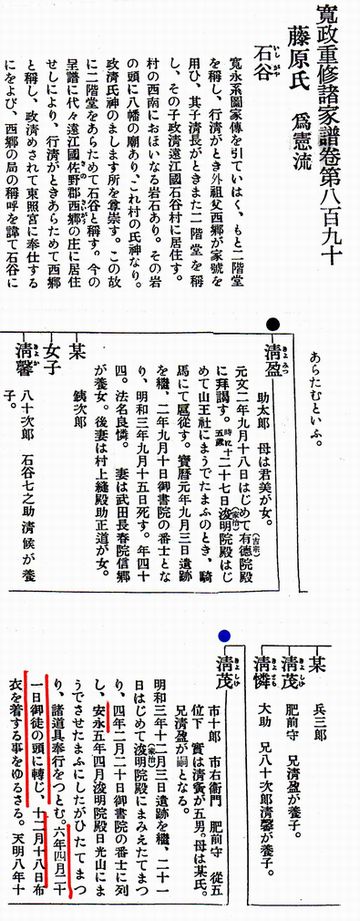 寛政重修諸家譜巻第八百九十
藤原氏 爲憲流
石谷
いしがや
寛永系圖家傳を引ていはく、もと二階堂
を稱し、行清がとき外祖父西郷が家號を
用ひ、其子清長がときまた二階堂を稱
し、その子政清遠江國石谷村に居住す。
村の西南におほいなる岩石あり。その岩
の頭に八幡の廟あり、これ村の氏神なり。
政清氏神のまします所を尊崇す。この故
に二階堂をあらためて石谷と稱す。今の
呈譜に代々遠江國佐野郡西郷の庄に居住
せしにより、行清がときあらためて西郷
と稱し、政清めされて東照宮に奉仕する
にをよび、西郷の局の稱呼を諱て石谷に
あらたむといふ。
清盈
きよみつ
助太郎 母は君美が女。
元文二年九月十八日はじめて有德院殿(吉宗)
に拜謁す。時に五歳 十二月十七日浚明院殿(家治)はじ
めて山王社にまうでたまふのとき、騎
馬にて扈從す。寶暦元年九月三日遺跡
を繼、二年九月十日御書院の番士とな
り、明和三年九月十五日死す。年四十
四。法名良憐。 妻は武田長春院信郷
が養女。後妻は村上縫殿助正道が女。
某
銕次郎
女子
清馨
きよか
八十次郎 石谷七之助清候が養
子。
某
兵三郎
清茂
きよしげ
肥前守 兄清盈が養子。
清憐
きよさと
大助 兄八十次郎清馨が養子。
清茂
きよしげ
市十郎 市右衛門 肥前守 從五
位下 實は清寅が五男。母は某氏。
兄清盈が嗣となる。
明和三年十二月三日遺跡を繼、二十一
日はじめて浚明院殿(家治)にまみえたてまつ
り、四年二月二十日御書院の番士に列
し、安永五年四月浚明院殿日光山にま
うでさせたまふにしたがひたてまつ
り、諸道具奉行をつとむ。六年四月二十
一日御徒の頭に轉じ、十二月十八日布
衣を着する事をゆるさる。天明八年十